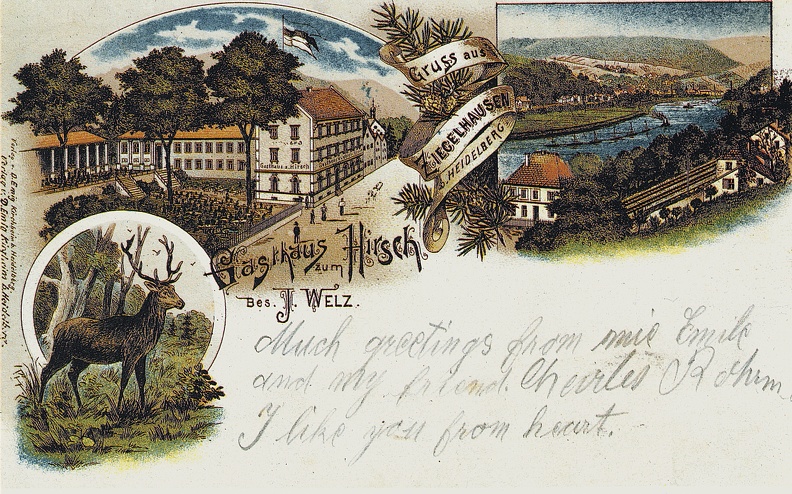 Gruss aus
ZIEGELHAUSEN
B. HEIDELBERG
Gasthaus z. Hirsch
Gasthaus
zum Hirsch
Bes. J. WELZ.
Much greetings from mie Emile
and my friend Charles Rohrm
I like you from heart.